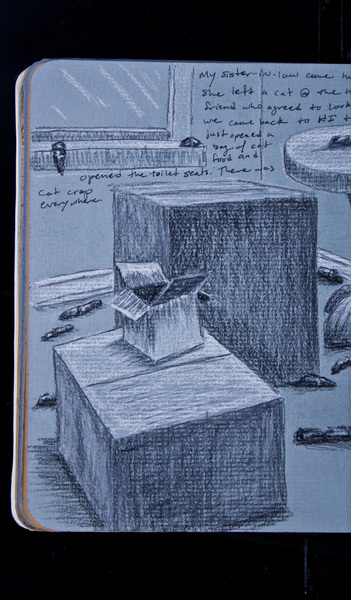 My sister-in-law came
She left a cat @ the
friend who agreed to look
we came back to
just opened a
bag of cat
food and
opened the toilet seats. There was
cat crap
everywhere